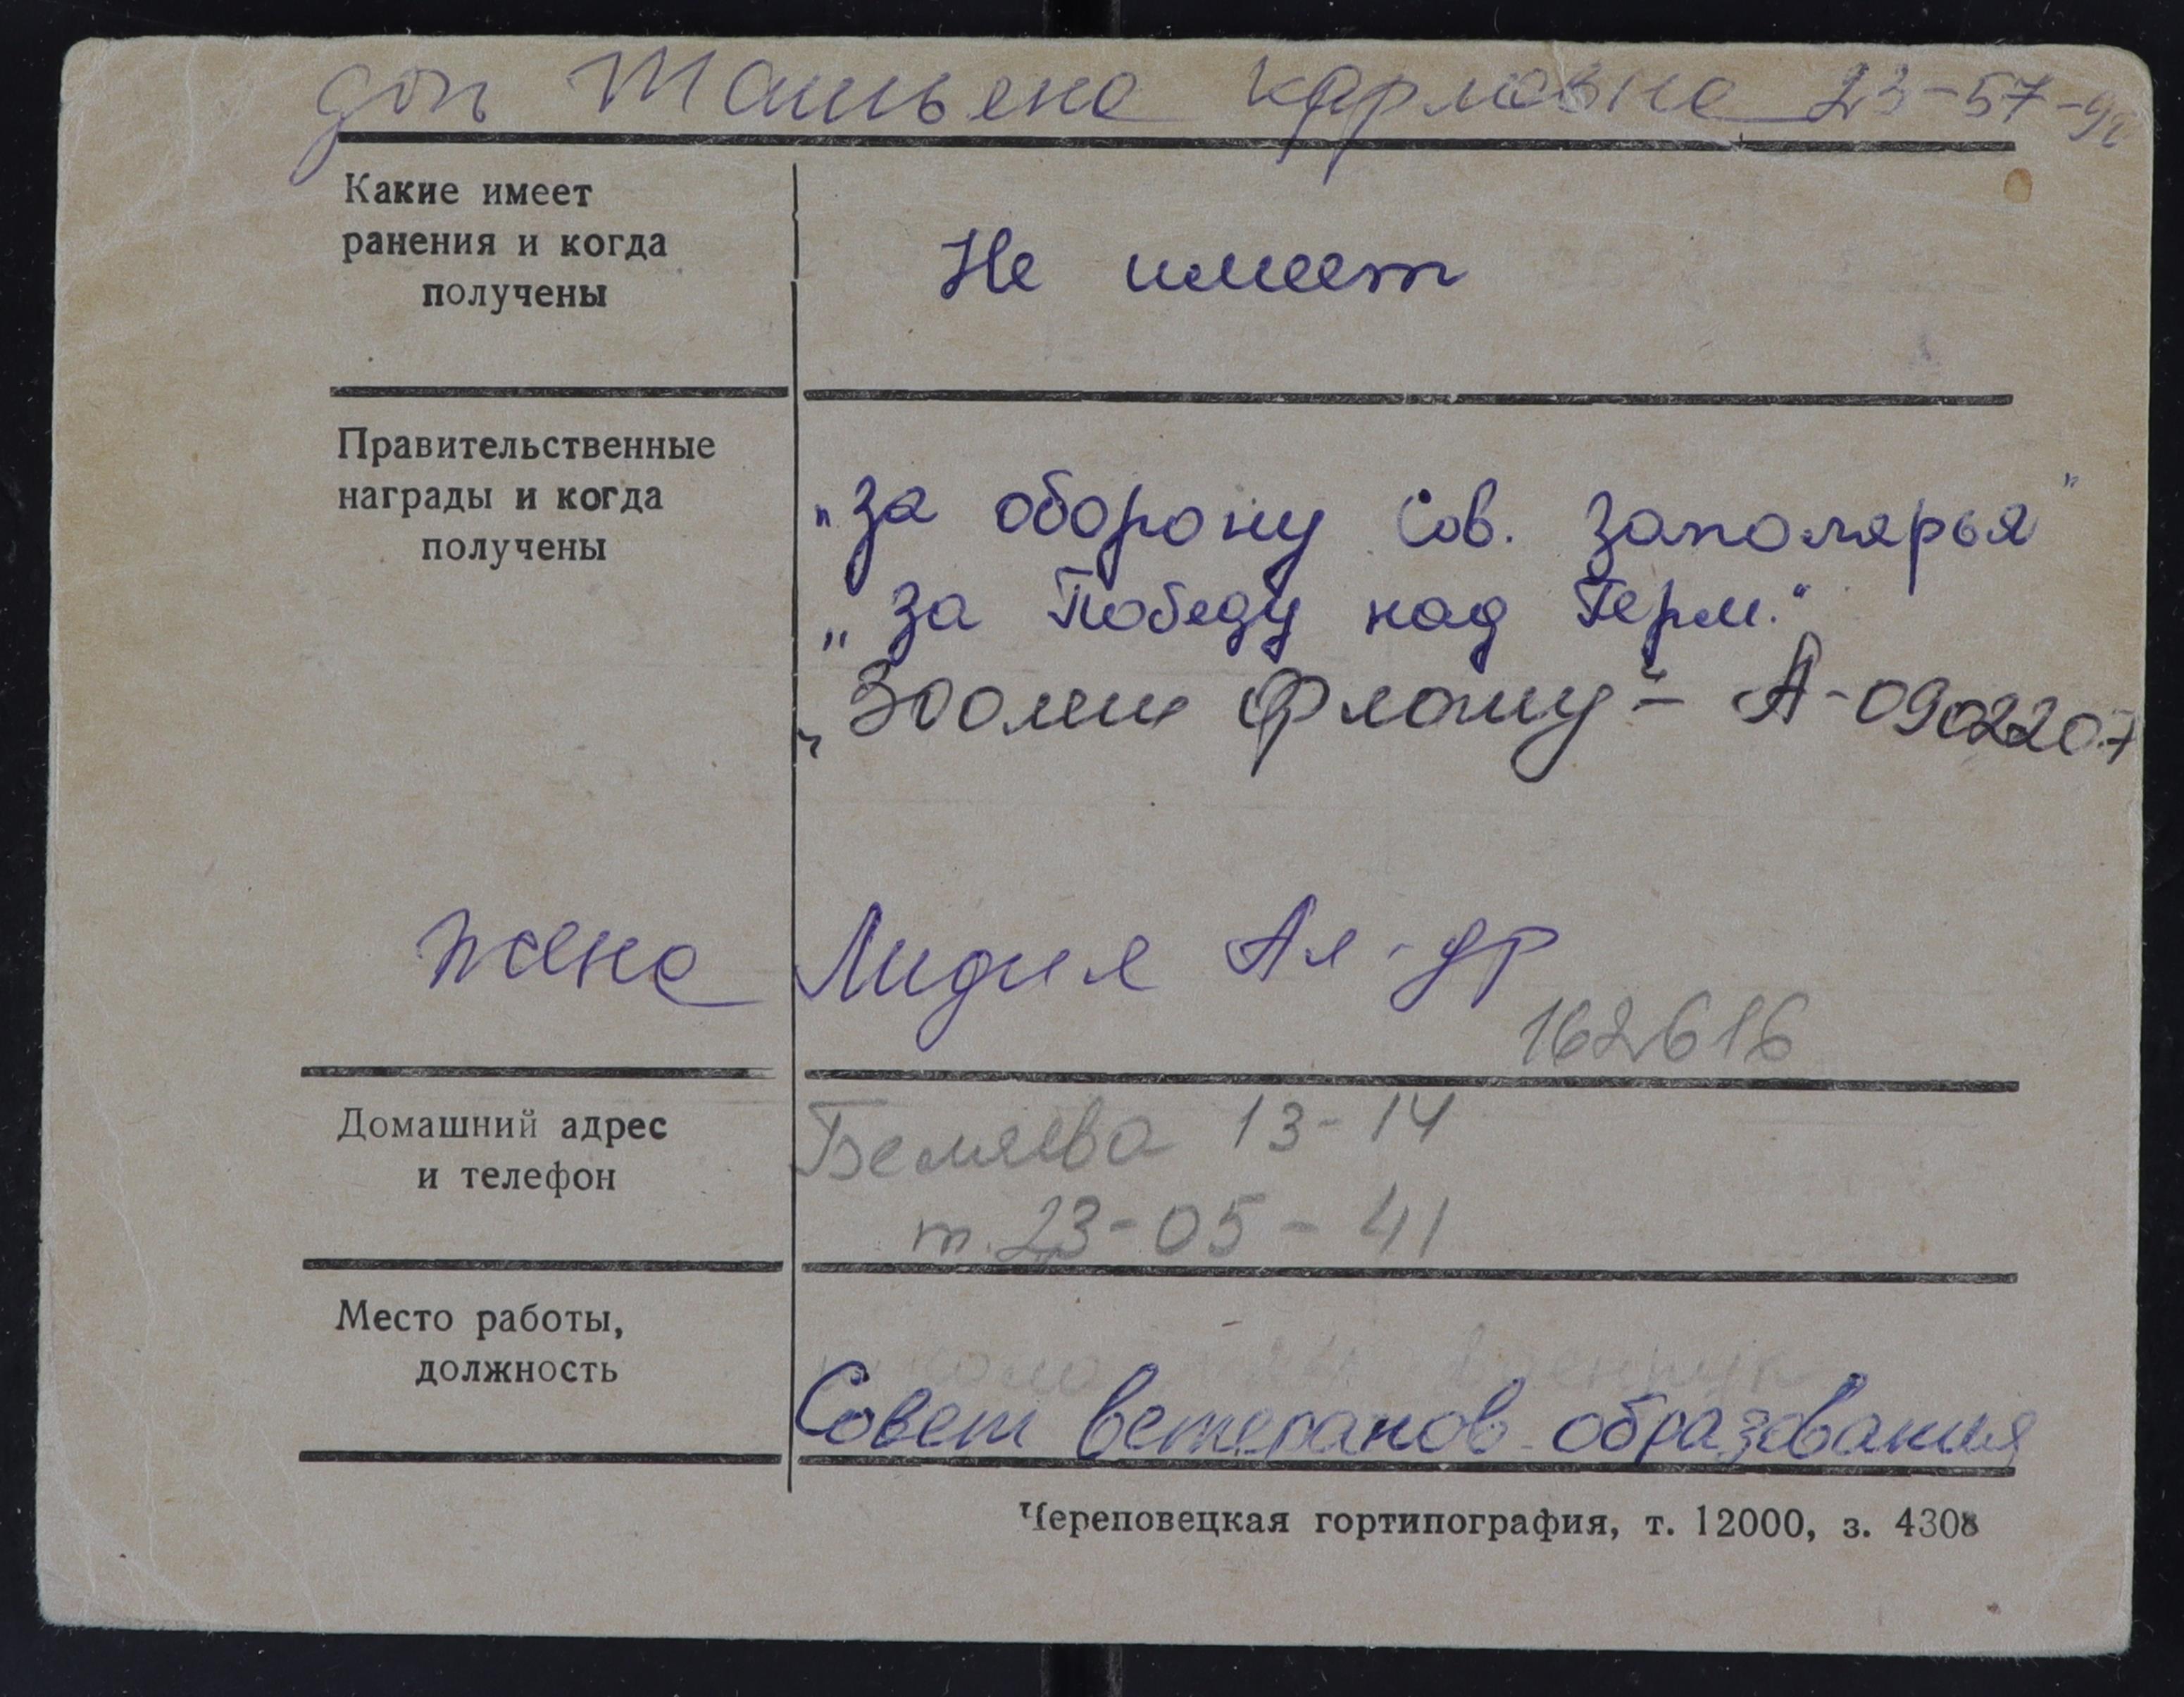 доп Татьяна Карловна 23-57-
Какие имеет
ранения и когда
получены
Не имеет
Правительственные
награды и когда
получены
"За оборону Сов. Заполярья"
"За Победу над Герм."
"300 лет флоту" - А-0902207
жена Лидия Ал-др
162616
Домашний адрес
и телефон
Беляева 13-14
т. 23-05-41
Место работы,
должность
Совет ветеранов образования
Череповецкая гортипография, т. 12000, з. 4308